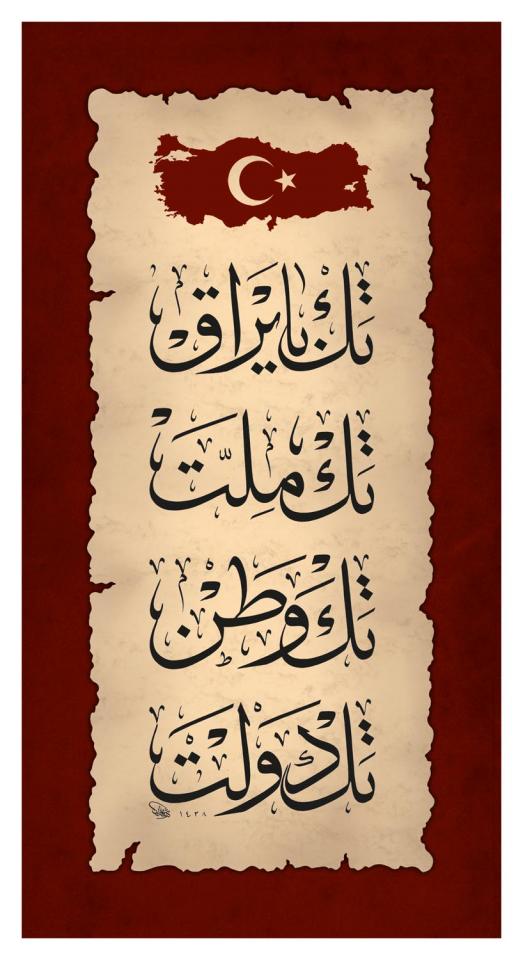 تَكْ بَايْرَاقْ
تَكْ مِلَّتْ
تَكْ وَطَنْ
تَكْ دَوْلَتْ
١٤٣٨